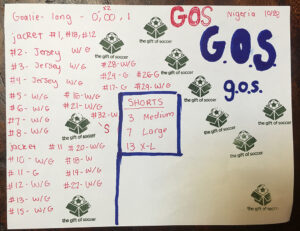 x2
Goalie - long - 0, 00, 1
GOS
Nigeria 1989
jacket #1, #18, #12
G.O.S.
g.o.s.
#2 - Jersey W/G
#3 - Jersey W/G
#4 - Jersey W/G
#28 - W/G
#24 - G #26 - G
#17 - G #29 - W/G
#5 - W/G
#16 - W/G
#6 - W/G
#21 - W/G
#7 - W/G
#32 - W
#8 - W/G
'S
SHORTS
3 Medium
7 Large
13 X-L
jacket #11
#20 - W/G
#10 - W/G
#18 - W
#11 - G
#19 - W/G
#12 - W/G
#22 - W/G
#13 - W/G
#15 - W/G
the gift of soccer
the gift of soccer
the gift of soccer
the gift of soccer
the gift of soccer
the gift of soccer
the gift of soccer
the gift of soccer
the gift of soccer